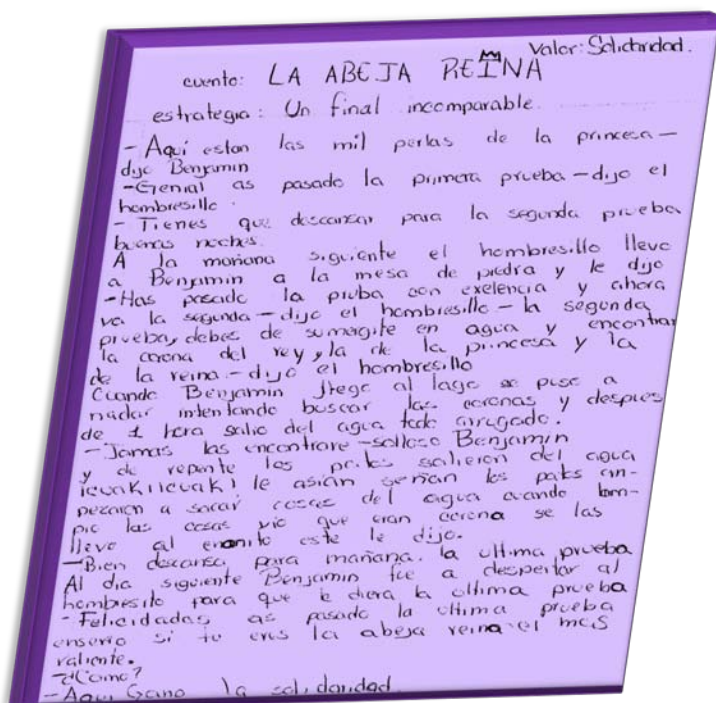 Valor: Solidaridad.
cuento: LA ABEJA REINA
estrategia: Un final incomparable.
- Aquí estan las mil perlas de la princesa -
dijo Benjamin
- Genial as pasado la primera prueba - dijo el
hombresillo.
- Tienes que descansar para la segunda prueba
buenas noches.
A la mañana siguiente el hombresillo llevo
a Benjamin a la mesa de piedra y le dijo
- Has pasado la pruba con exelencia y ahora
va la segunda - dijo el hombresillo - la segunda
prueba, debes de sumergite en agua y encontrar
la corona del rey y la de la princesa y la
de la reina. - dijo el hombresillo
Cuando Benjamin llego al lago se puso a
nadar intentando buscar las coronas y despues
de 1 hora salio del agua todo arrugado.
- Jamas las encontrare - solloso Benjamin
y de repente los patos salieron del agua
¡cuak! ¡cuak! le asian los patos en-
pezaron a sacar cosas del agua cuando lim-
pio las cosas vio que eran corona se las
llevo al enanito este le dijo.
- Bien descansa para mañana. la ultima prueba
Al dia siguiente Benjamin fue a despertar al
hombresito para que le diera la ultima prueba
- Felicidadas as pasado la ultima prueba
enserio si tu eres la abeja reina el mas
valiente.
- ¿Como?
- Aqui Gano la solidaridad